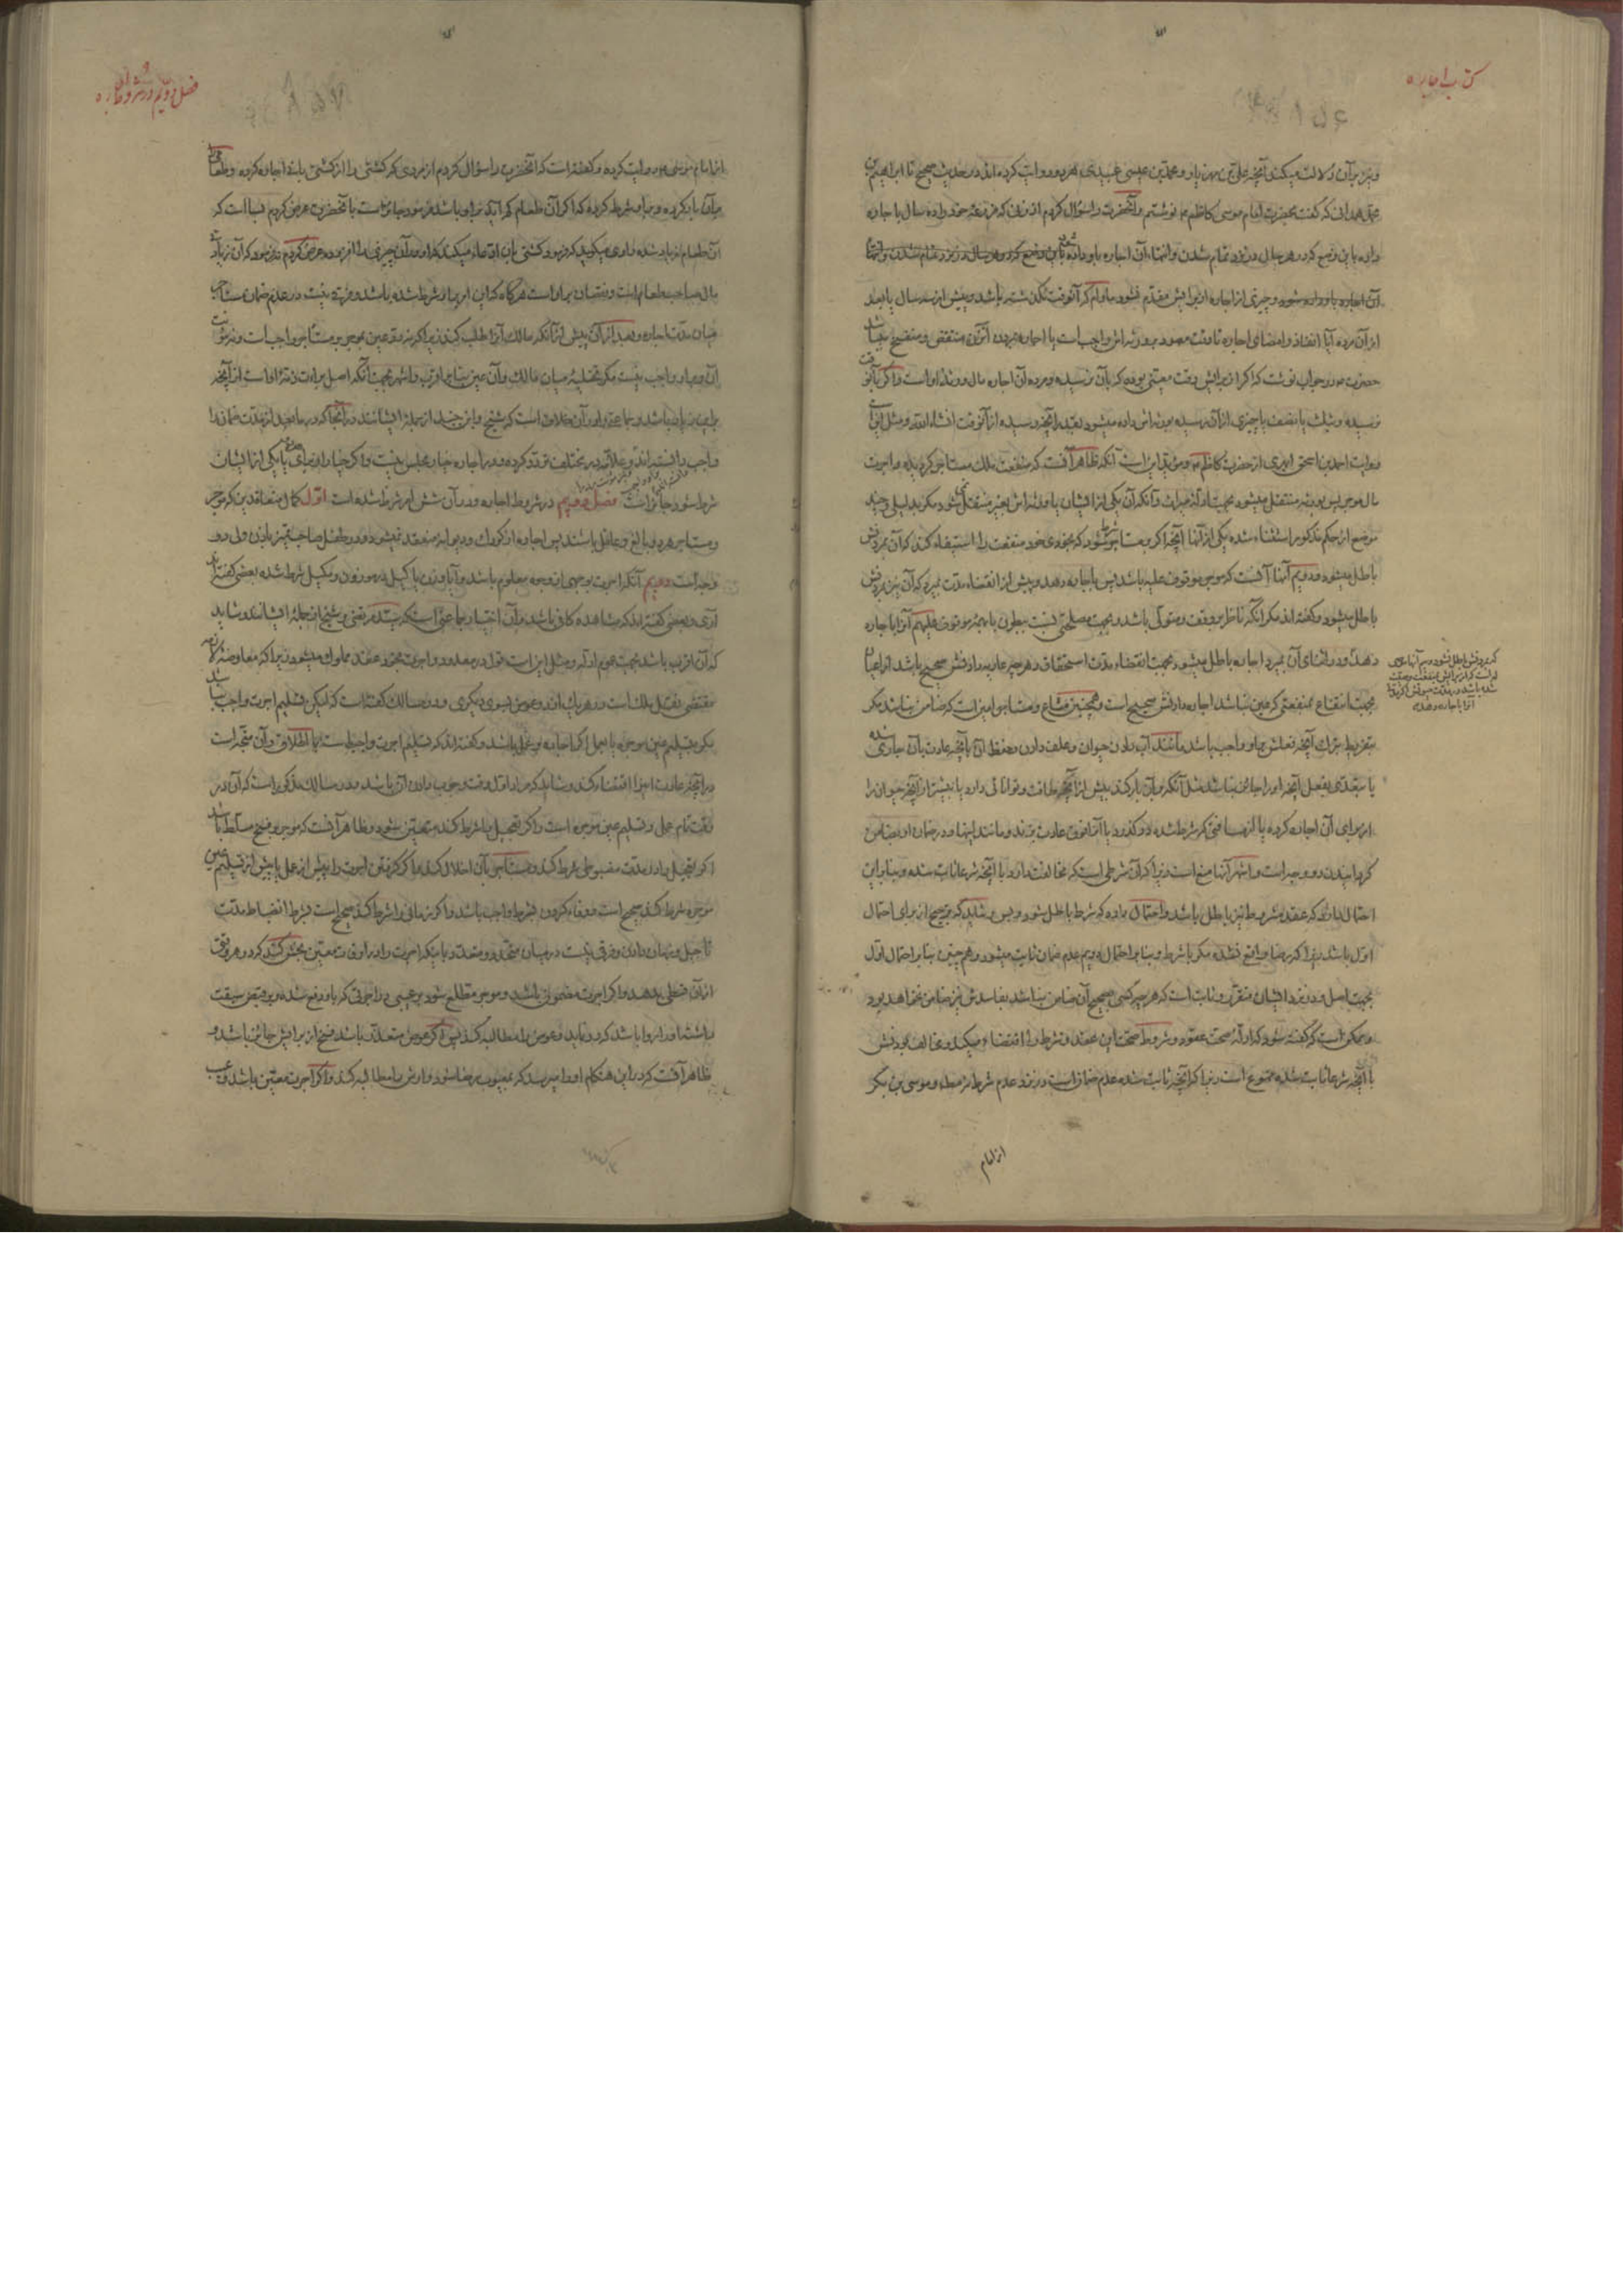 کتاب اجاره
و نیز بر آن دلالت میکند آنچه علی بن مهزیار و محمد بن عیسی عبیدی هر دو روایت کرده‌اند در حدیث صحیح تا ابراهیم بن
محمد همدانی که گفت بحضرت امام موسی کاظم نوشتم و آنحضرت را سؤال کردم از زنی که مزرعه خود را ده سال باجاره
داده باین وضع که در هر سال در نزد تمام شدن و انتهاء آن اجاره باو داده شود
آن اجاره باو داده شود و چیزی از اجاره از برایش مقدم نشود مادام که آنوقت نگذشته باشد و پیش از سه سال یا بعد
از آن مرده آیا انفاذ و امضای اجاره تا وقت مورد بر ورثه‌اش واجب است یا اجاره بمردن آنزن منتقض و منفسخ میباشد
حضرت در جواب نوشت که اگر از برایش وقت معینی بوده که بآن نرسیده و مرده آن اجاره مال ورثه او است و اگر بآنوقت
نرسیده و ثلث یا نصف یا چیزی از آن رسیده بورثه‌اش داده میشود بقدر آنچه رسیده از آنوقت انشاء الله و مثل این است
روایت احمد بن اسحق ابهری از حضرت کاظم و مؤید این است آنکه ظاهر آنست که منفعت ملک مستاجر گردیده و اجرت
مال موجر پس بورثه منتقل میشود بجهت ادله میراث و آنکه آن یکی از ایشان یا ورثه‌اش بغیر منتقل نمیشود مگر بدلیل و چند
موضع از حکم مذکور استثناء شده یکی از آنها آنچه اگر بر مستاجر شرط شود که بخودی خود منفعت را استیفاء کند که آن بمردنش
باطل میشود و دویم آنها آنست که موجر موقوف علیه باشد پس باجاره دهد و پیش از انقضاء مدت بمیرد که آن نیز بمردنش
باطل میشود و گفته‌اند مگر آنکه ناظر بر وقف و متولی باشد و بجهت مصلحتی نسبت ببطون یا همه موقوف علیهم آنرا باجاره
دهد و در اثنای آن بمیرد اجاره باطل میشود بجهت انقضاء مدت استحقاق و هر چیز عاریه دادنش صحیح باشد از اعیان
بجهت انتفاع بمنفعتی که عین نباشد اجاره دادنش صحیح است و همچنین مشاع و مستاجر امین است که ضامن نباشد مگر
بتفریط بترک آنچه فعلش بر او واجب باشد مانند آب دادن حیوان و علف دادن و حفظ آن بآنچه عادت بآن جاری شده
یا بتعدی بفعل آنچه او را جائز نباشد مثل آنکه بر آن بار کند بیش از آنچه طاقت و توانائی دارد یا بیشتر از آنچه حیوان را
از برای آن اجاره کرده یا از مسافتی که شرط شده در گذرد یا آنرا فوق عادت بزند و مانند اینها و در ضمان او بضامن
گردانیدن دو وجه است و اشهر آنها منع است زیرا که آن شرطی است که مخالفت دارد با آنچه شرعا ثابت شده و بنابراین
احتمال دارد که عقد مشروط نیز باطل باشد و احتمال دارد که شرط باطل شود و بس و شاید که ترجیح از برای احتمال
اول باشد زیرا که رضا واقع نشده مگر با شرط و بنابر احتمال دویم عدم ضمان ثابت میشود و همچنین بنابر احتمال اول
بجهت اصل و در نزد ایشان مقرر و ثابت است که هر چیز که صحیح آن ضامن نباشد بفاسدش نیز ضامن نخواهد بود
و ممکن است که گفته شود که ادله صحت عقود و شروط صحت این عقد و شرط را اقتضاء میکند و مخالف بودنش
با آنچه شرعا ثابت شده ممنوع است زیرا که آنچه ثابت شده عدم ضمان است در نزد عدم شرط نه مطلقا و موسی بن بکر
شده باشد در مدت
آنرا باجاره دهد
از امام
فصل دویم در شروط اجاره
از امام موسی روایت کرده و گفته است که آنحضرت را سؤال کردم از مردی که کشتی را از کشتی بانی اجاره کرده و طعامی
بر آن بار کرده و بر او شرط کرده که اگر آن طعام کم آید بر او باشد فرمود جائز است بآنحضرت عرض کردم بسا است که
آن طعام زیاد شده راوی میگوید که فرمود کشتی بان ادعاء میکند که او در آن چیزی را افزوده عرض کردم نه فرمود که آن زیادتی
مال صاحب طعام است و نقصان بر او است هرگاه که این را بر او شرط شده باشد و فرقی نیست در عدم ضمان مستاجر
میان مدت اجاره و بعد از آن پیش از آنکه مالک آنرا طلب کند زیرا که رد عین موجره بر مستاجر واجب است و مؤنت
آن بر او واجب نیست مگر تخلیه میان مالک و آن عین بنابر اقرب و اشهر بجهت آنکه اصل برائت ذمه او است از آنچه
براین زیاده باشد و جماعتی را در آن خلاف است که شیخ و ابن جنید از جمله ایشانند در آنجا که در ما بعد از مدت ضمان را
واجب دانسته‌اند و علامه در مختلف تردد کرده و در اجاره خیار مجلس نیست و اگر خیار از برای هر دو یا یکی از ایشان
شرط شود جائز است فصل دویم در شروط اجاره و در آن شش امر شرط شده است اول کمال متعاقدین که موجر
و مستاجر هر دو بالغ و عاقل باشند پس اجاره از کودک و دیوانه منعقد نمیشود و در طفل صاحب تمیز باذن ولی دو
وجه است دویم آنکه اجرت بوجهی از وجوه معلوم باشد و آیا وزن یا کیل در موزون و مکیل شرط شده بعضی گفته‌اند
آری و بعضی گفته‌اند که مشاهده کافی باشد و آن اختیار جماعتی است که سید مرتضی و شیخ از جمله ایشانند و شاید
که آن اقرب باشد بجهت عموم ادله و مثل این است قول در معدود و اجرت بمجرد عقد مملوک میشود زیرا که معاوضه لازمه
مقتضی نقل ملک است در هر یک از دو عوض بسوی دیگری و در مسالک گفته است که لیکن تسلیم اجرت واجب نباشد
مگر بتسلیم عین موجره یا بعمل اگر اجاره بر عمل باشد و گفته‌اند که تسلیم اجرت واجب است با اطلاق و آن متجه است
در آنچه عادت آنرا اقتضاء کند و شاید که مراد اول وقت وجوب دادن آن باشد و در مسالک مذکور است که آن در
وقت تمام عمل و تسلیم عین موجره است و اگر تعجیل را شرط کند متعین شود و ظاهر آنست که موجر بر فسخ مسلط باشد
اگر تعجیل را در مدت مضبوطی شرط کند و مستاجر بآن اخلال کند و اگر گرفتن اجرت را پیش از عمل یا پیش از تسلیم عین
موجره شرط کند صحیح است و وفاء کردن بشرط واجب باشد و اگر زمانی را شرط کند صحیح است بشرط انضباط مدت
تاجیل و زمان دادن و فرقی نیست در میان متحد و متعدد باینکه اجرت را در اوقات معین بخش کند که در هر وقت
از آن قسطی بدهد و اگر اجرت مضمون باشد و موجر مطلع شود بر عیبی در اجرتی که باو دفع شده و بر قبض سبقت
داشته او را روا باشد که رد نماید و عوض را مطالبه کند پس اگر عوض متعذر باشد فسخ از برایش جائز باشد و
ظاهر آنست که در این هنگام او را میرسد که بمعیوب رضا شود و ارش را مطالبه کند و اگر اجرت معین باشد و عیب